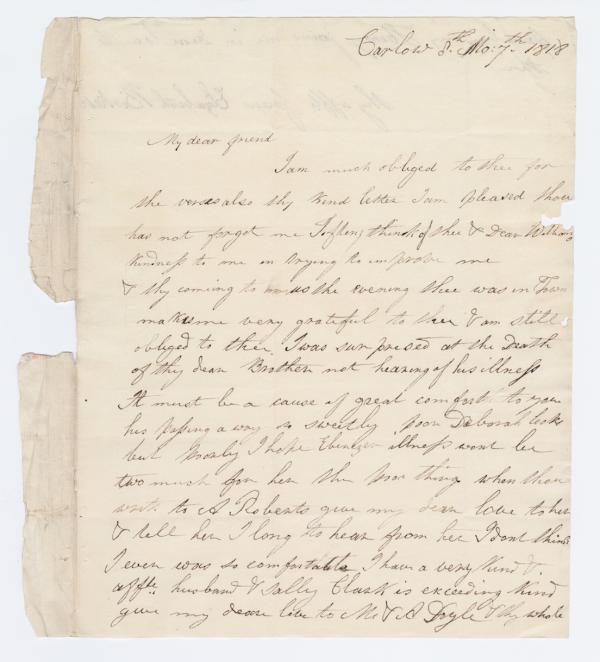 Carlow 8th Mo: 7th 1818
My dear friend
I am much obliged to thee for
the verses also thy kind letter I am pleased thou
has not forgot me I often think of thee & Dear
kindness to me in trying to improve me
& thy coming to us the evening thee was in Town
makes me very grateful to thee & am still
obliged to thee. I was surprised at the Death
of thy dear Brother not hearing of his illness
It must be a cause of great comfort to you
his passing a way so sweetly, poor Deborah looks
but poorly I hope Ebenezer illness wont be
two much for her the poor thing when thou
write to A Roberts give my dear love to her
& tell her I long to hear from her I dont think
I ever was so comfortable I have a very kind &
affte. husband & Sally Clark is exceeding kind
give my deare love to M & A Doyle & thy whole